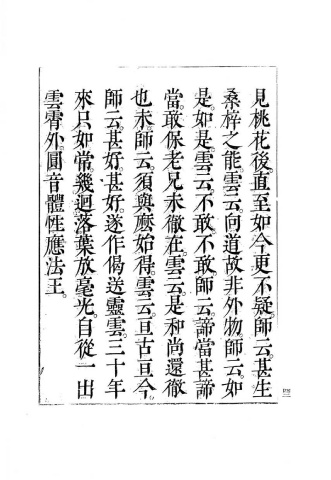 見桃花後。直至如今更不疑。師云。甚生
桑梓之能。雲云。向道故非外物。師云。如
是。如是。雲云。不敢。不敢。師云。諦當甚諦
當。敢保老兄未徹在。雲云。是和尚還徹
也未。師云。須與麽始得。雲云。亘古亘今
師云。甚好甚好。遂作偈送靈雲。三十年
來只如常。幾迴落葉放毫光。自從一出
雲霄外。圓音體性應法王。